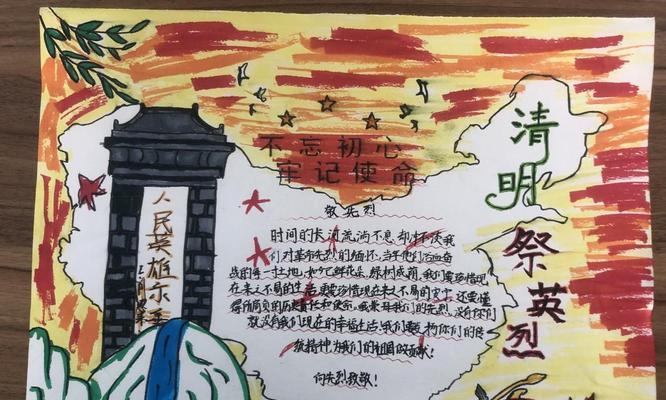 清明
祭英烈
不忘初心
牢记使命
人民英雄永垂
敬先烈
时间的长河流淌不息,却怀决我
们对革命先烈的缅怀,当年
战的每一寸土地,如今已鲜花朵,绿树成荫,我们要珍惜现
在来之不易的生活,更要珍惜现在来之不易的安,还要懂
得所肩负的历史责任和使命,感恩我们的先烈,没有你们
就没有我们现在的幸福生活,我们要扬你们的传
统精神,为我们的祖国做贡献!
向先烈致敬!